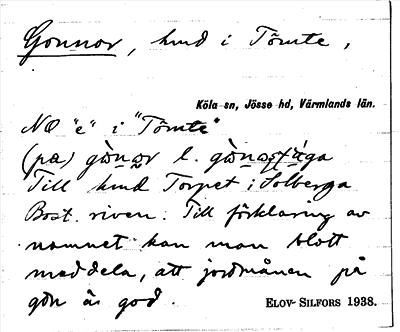 Gonnor, hmd i Tömte,
Köla sn, Jösse hd, Värmlands län.
NO "e" i "Tömte"
(pæ) gònər l.
Till hmd Torpet i Solberga
Bost. riven. Till förklaring av
namnet kan man blott
meddela, att jordmånen på
gdn är god.
ELOV-SILFORS 1938.